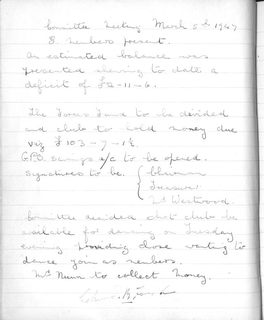 Committee Meeting March 5th 1947
8 members present.
An estimated balance was
presented showing to date a
deficit of £2-11-6.
The Fund to be divided
and club to hold money due
viz £103-7-1½
G.P.O. Savings a/c to be opened.
Signatures to be. { Chairman
Treasurer
Mr Westwood.
Committee decided that club be
available for dancing on Tuesday
evening providing those wanting to
dance join as members.
Mrs Nunn to collect money.